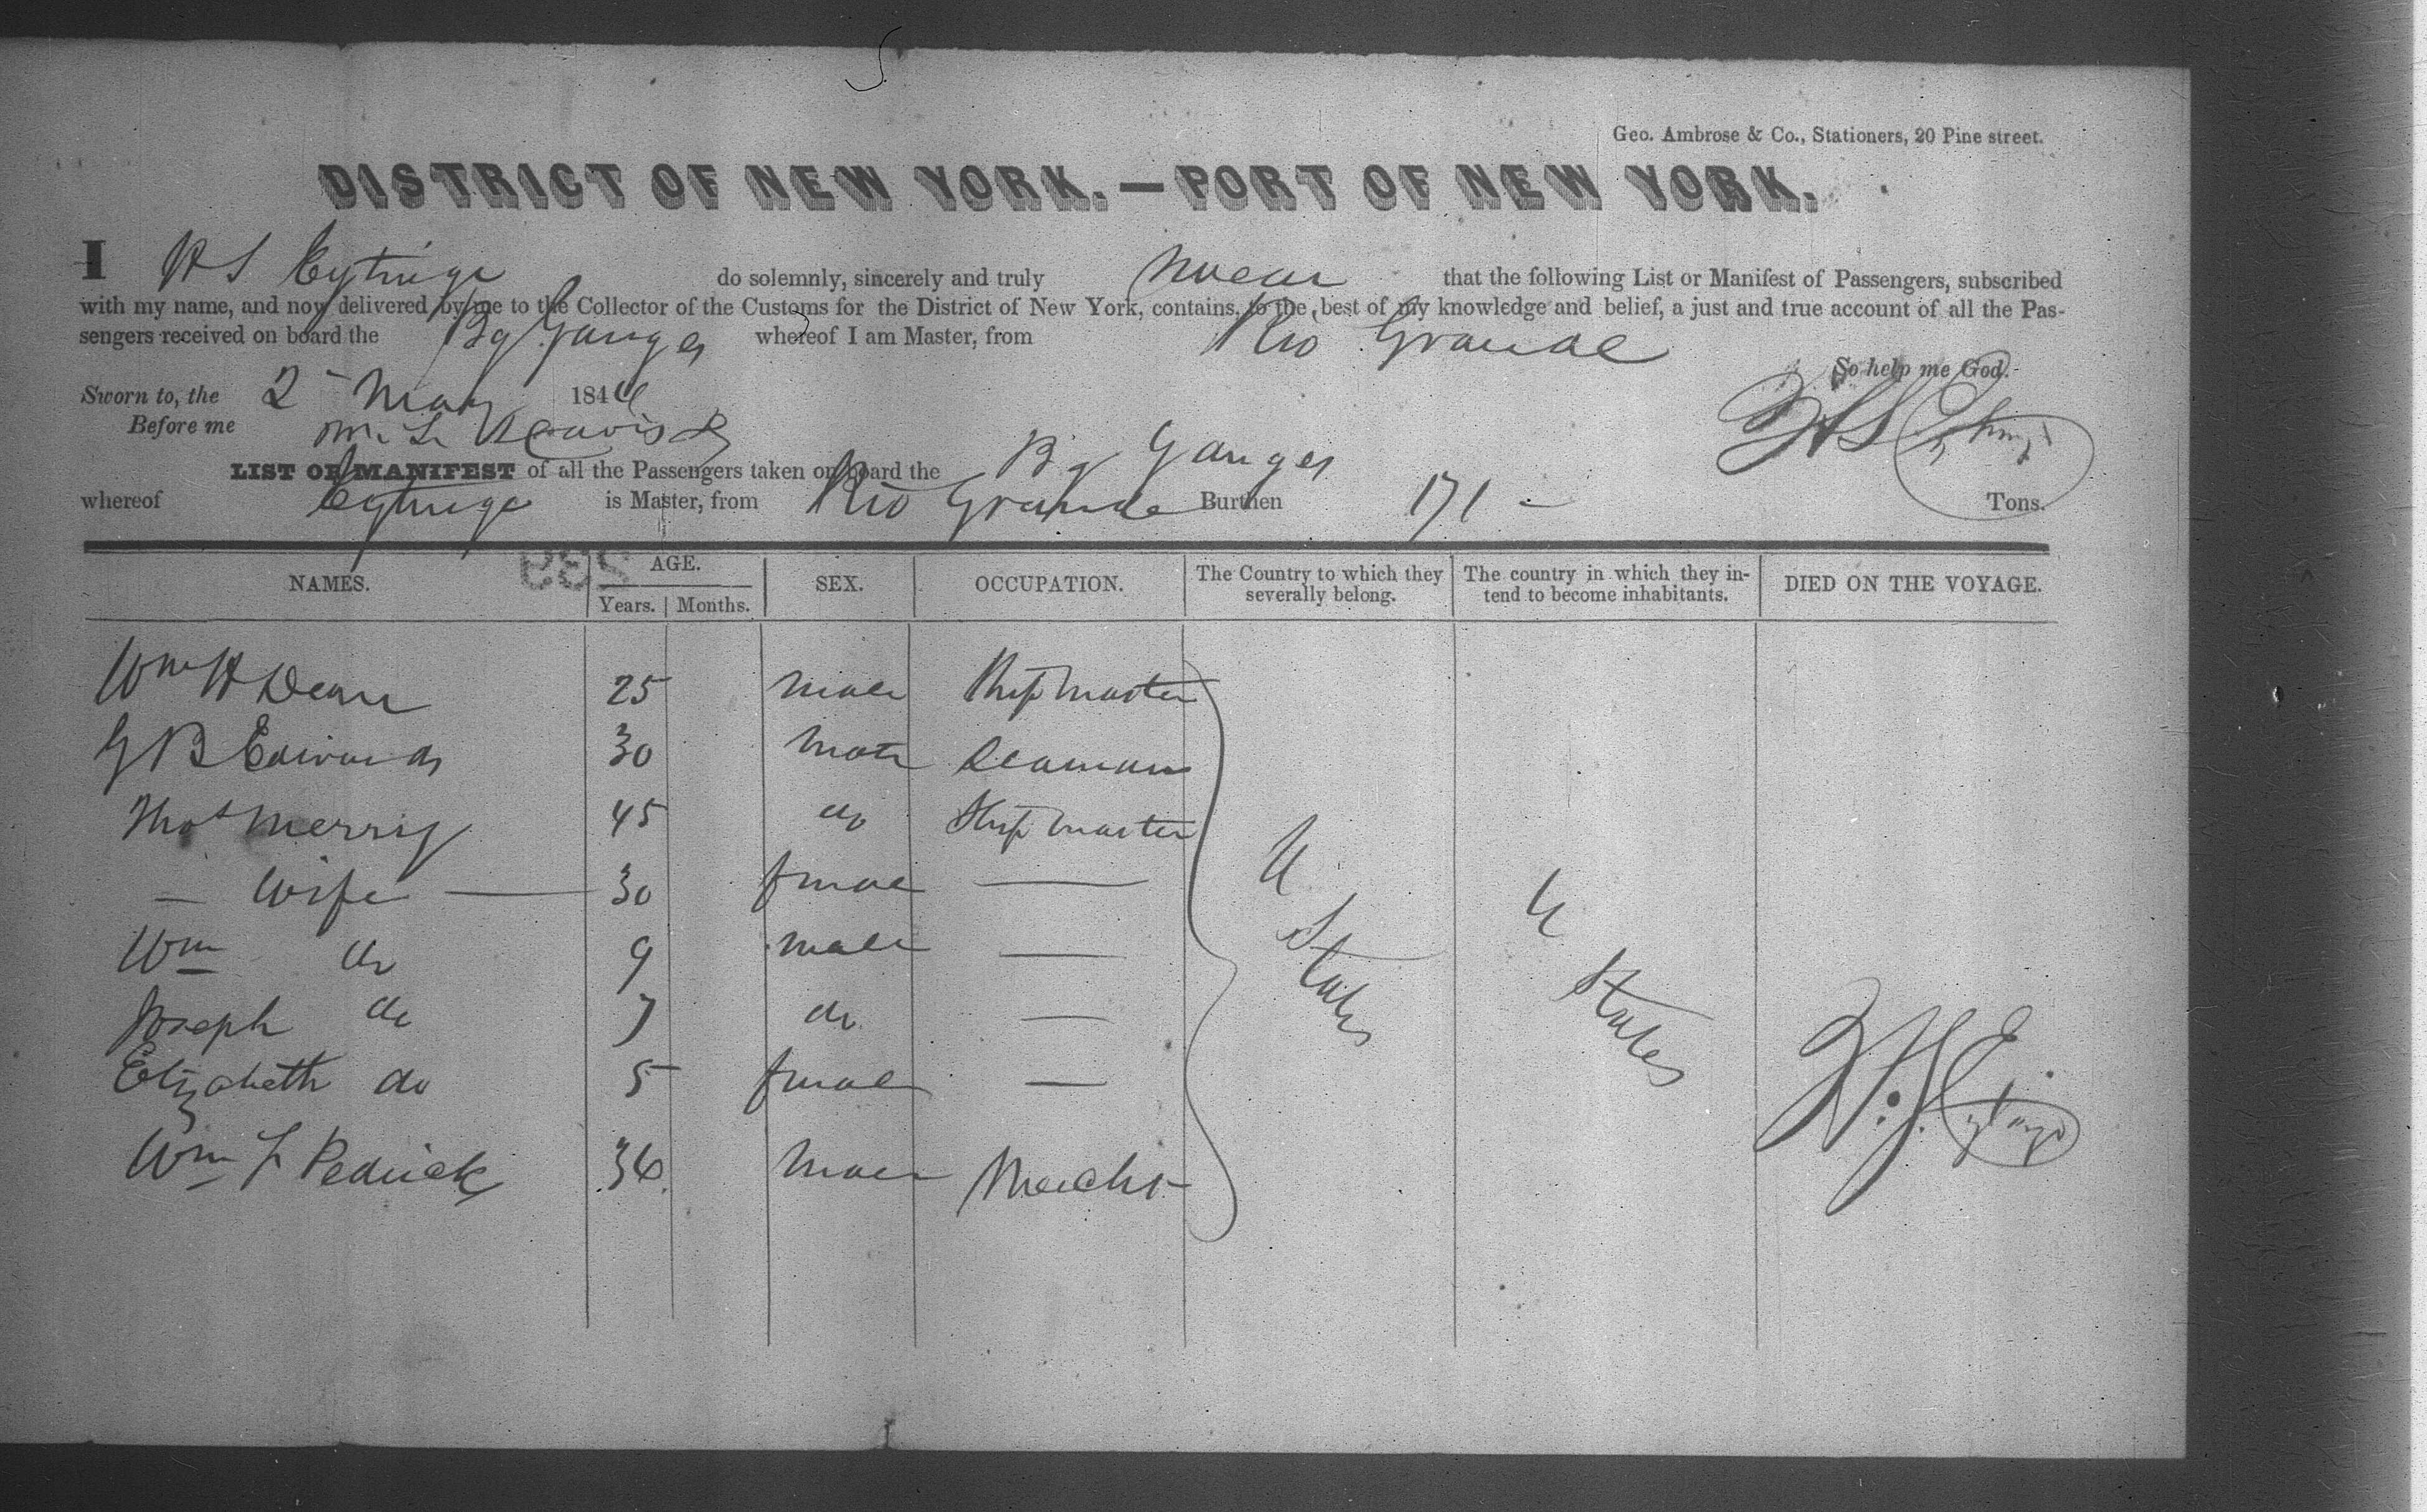 Geo. Ambrose & Co., Stationers, 20 Pine street.
DISTRICT OF NEW YORK.—PORT OF NEW YORK.
I H S Eytinge do solemnly, sincerely and truly swear that the following List or Manifest of Passengers, subscribed
with my name, and now delivered by me to the Collector of the Customs for the District of New York, contains, to the best of my knowledge and belief, a just and true account of all the Pas-
sengers received on board the Bg Ganges whereof I am Master, from Rio Grande
So help me God.
Sworn to, the 2 May 184
Before me
H S Eytinge
LIST OR MANIFEST of all the Passengers taken on board the Bg Ganges
whereof Eytinge is Master, from Rio Grande Burthen 171 - Tons.
NAMES. AGE. Years. Months. SEX. OCCUPATION. The Country to which they severally belong. The country in which they intend to become inhabitants. DIED ON THE VOYAGE.
Wm H Dean 25 male Shipmaster
G B Edwards 30 Seaman
Thos Merry 45 do Shipmaster
— Wife — 30 female —
Wm do 9 male —
Joseph do 7 do —
Elizabeth do 5 female —
Wm Pedrick 36 male Mercht
U States
U States
H. S. Eytinge